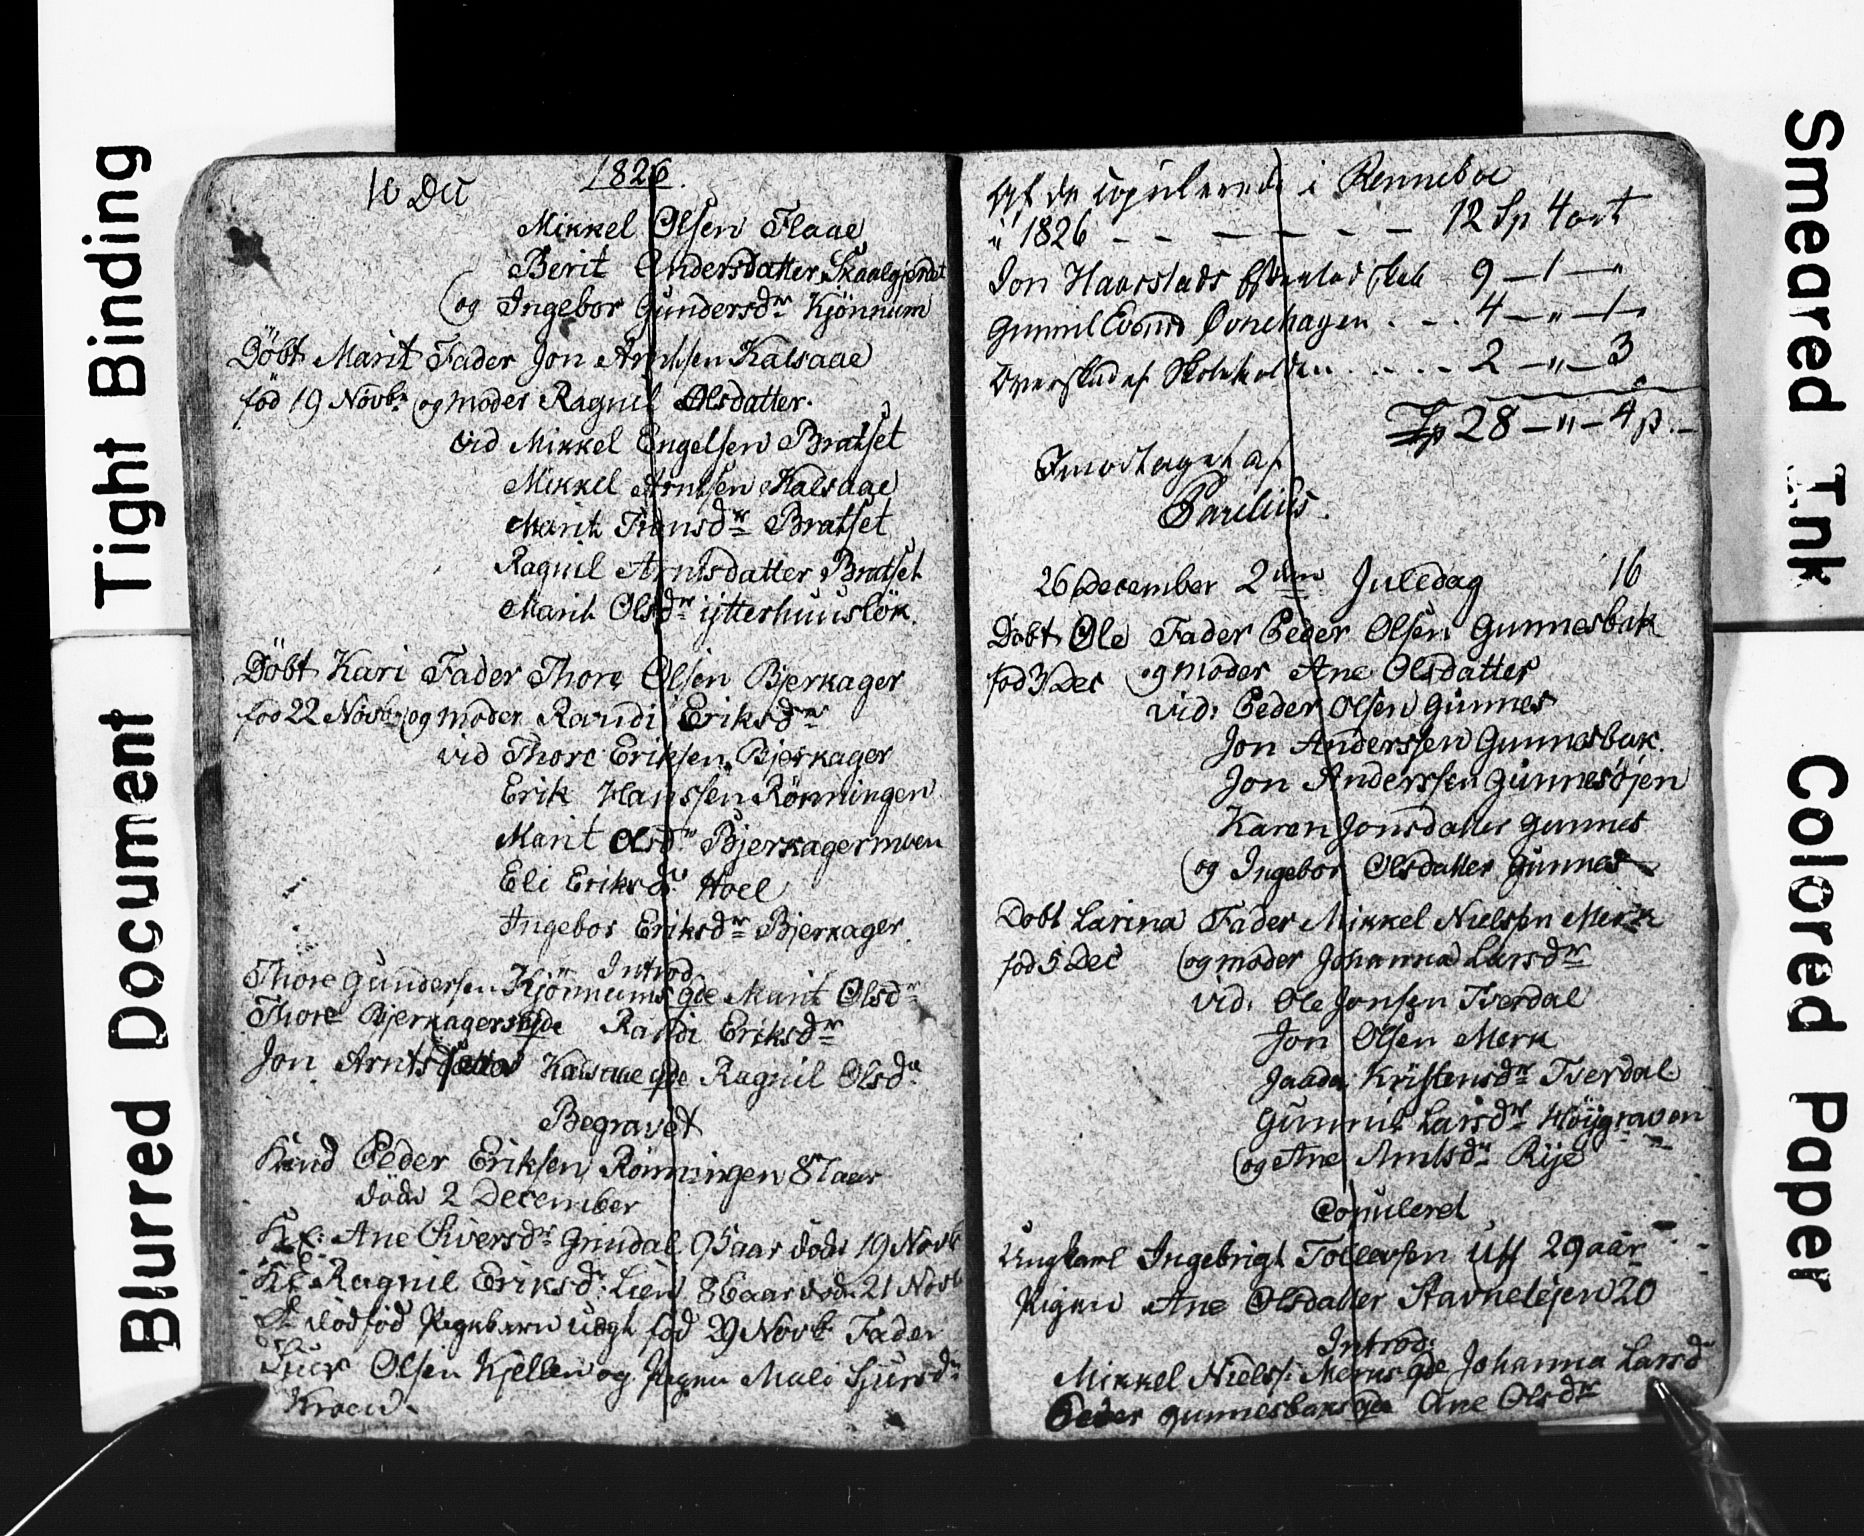 Tight Binding
Blurred Document
Smeared Ink
Colored Paper
10 Dec 1826.
Mikkel Olsen Flaae
Berit Andersdatter Skaalgjerdet
og Ingebor Gundersdr Kjönnum
Döbt Marit Fader Jon Arntsen Kalsaae
föd 19 Novbr og moder Ragnil Olsdatter.
vid Mikkel Engelsen Bratset
Mikkel Arntsen Kalsaae
Marit Tronsdr Bratset
Ragnil Arntsdatter Bratset
Marit Olsdr ÿtterhuuslök.
Döbt Kari Fader Thore Olsen Bjerkager
föd 22 Novbr og moder Randi Eriksdr
vid Thore Eriksen Bjerkager
Erik Hanssen Rönningen
Marit Olsdr Bjerkagermoen
Eli Eriksdr Hoel
Ingebor Eriksdr Bjerkager.
Introd:
Thore Gundersen Kjönnums gde Marit Olsdr
Thore Bjerkagers gde Randi Eriksdr
Jon Arnts Kalsaae gde Ragnil Olsdr
Begravet
Peder Eriksen Rönningen 87 aar
döde 2 December
Ane Siversdr Grindal 95 aar döde 19 Novb
Ragnil Eriksdr Lien 86 aar död 21 Novb
dödföd Pigebarn uægt föd 29 Novb Fader
Siur Olsen Kjellen og Pigen Mali Sjursdr
Kroen.
Af de copulerede i Renneboe
i 1826 - - - - - - 12 Sp 4 ort
Jon Haarstads Efterladskab 9 - 1 - "
Gunnil Evensd Ovnehagen . - . 4 - " - 1 -
Overskud af Skoleholden . . . . . 2 - " - 3
Sp 28 - " - 4 ß. -
Imodtaget af
Parelius.
26 December 2den Juledag 16
Döbt Ole Fader Peder Olsen Gunnesbak
föd 3 Dec og moder Ane Olsdatter
vid: Peder Olsen Gunnes
Jon Anderssen Gunnesbak.
Jon Anderssen Gunnesöjen
Karen Jonsdatter Gunnes
og Ingebor Olsdatter Gunnes
Döbt Larina Fader Mikkel Nielsen Merk
föd 5 Dec og moder Johanna Larsdr
vid: Ole Jonsen Tverdal
Jon Olsen Merk
Kristensdr Tverdal
Gunnil Larsdr Höÿgraven
og Ane Arntsdr Rije
Copuleret
Ungkarl Ingebrigt Tollevsen Uff 29 aar
Pigen Ane Olsdatter Stavneløjen 20
Introd:
Mikkel Niels: Merks gde Johanna Larsd
Peder Gunnesbaks gde Ane Olsdr